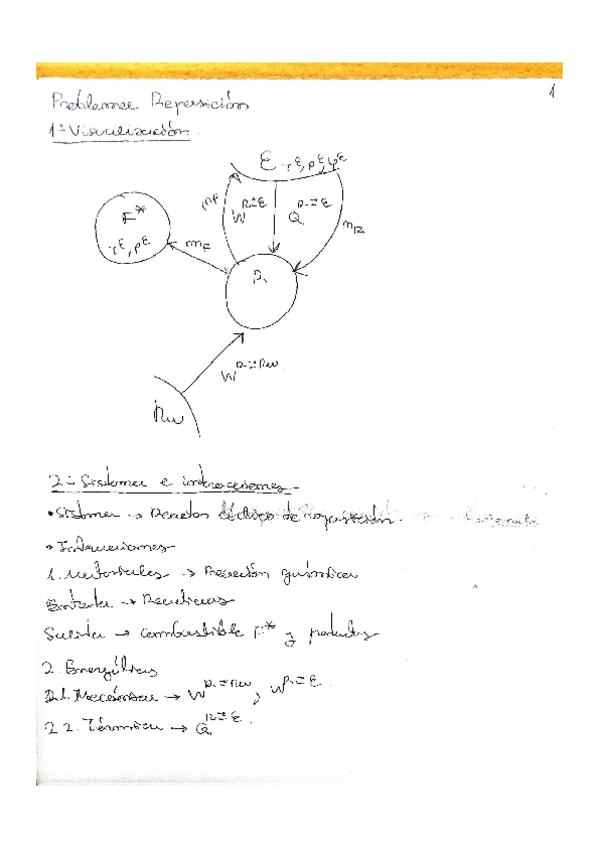 1
Problemas Reposición
1ª Visualización.
E T^E, P^E, φ^E
F*
T^E, P^E
m_F
m_P
W^{R⇌E}
Q^{R⇌E}
m_R
R
W^{R⇌Rw}
Rw
2ª Sistemas e interacciones
• Sistemas → Reactor de reposición.
• Interacciones
1. Materiales → Reacción química
Entrada → Reactivos
Salida → combustible F* y productos
2. Energéticas
2.1. Mecánica → W^{R⇌Rw}, W^{R⇌E}
2.2. Térmica → Q^{R⇌E}.